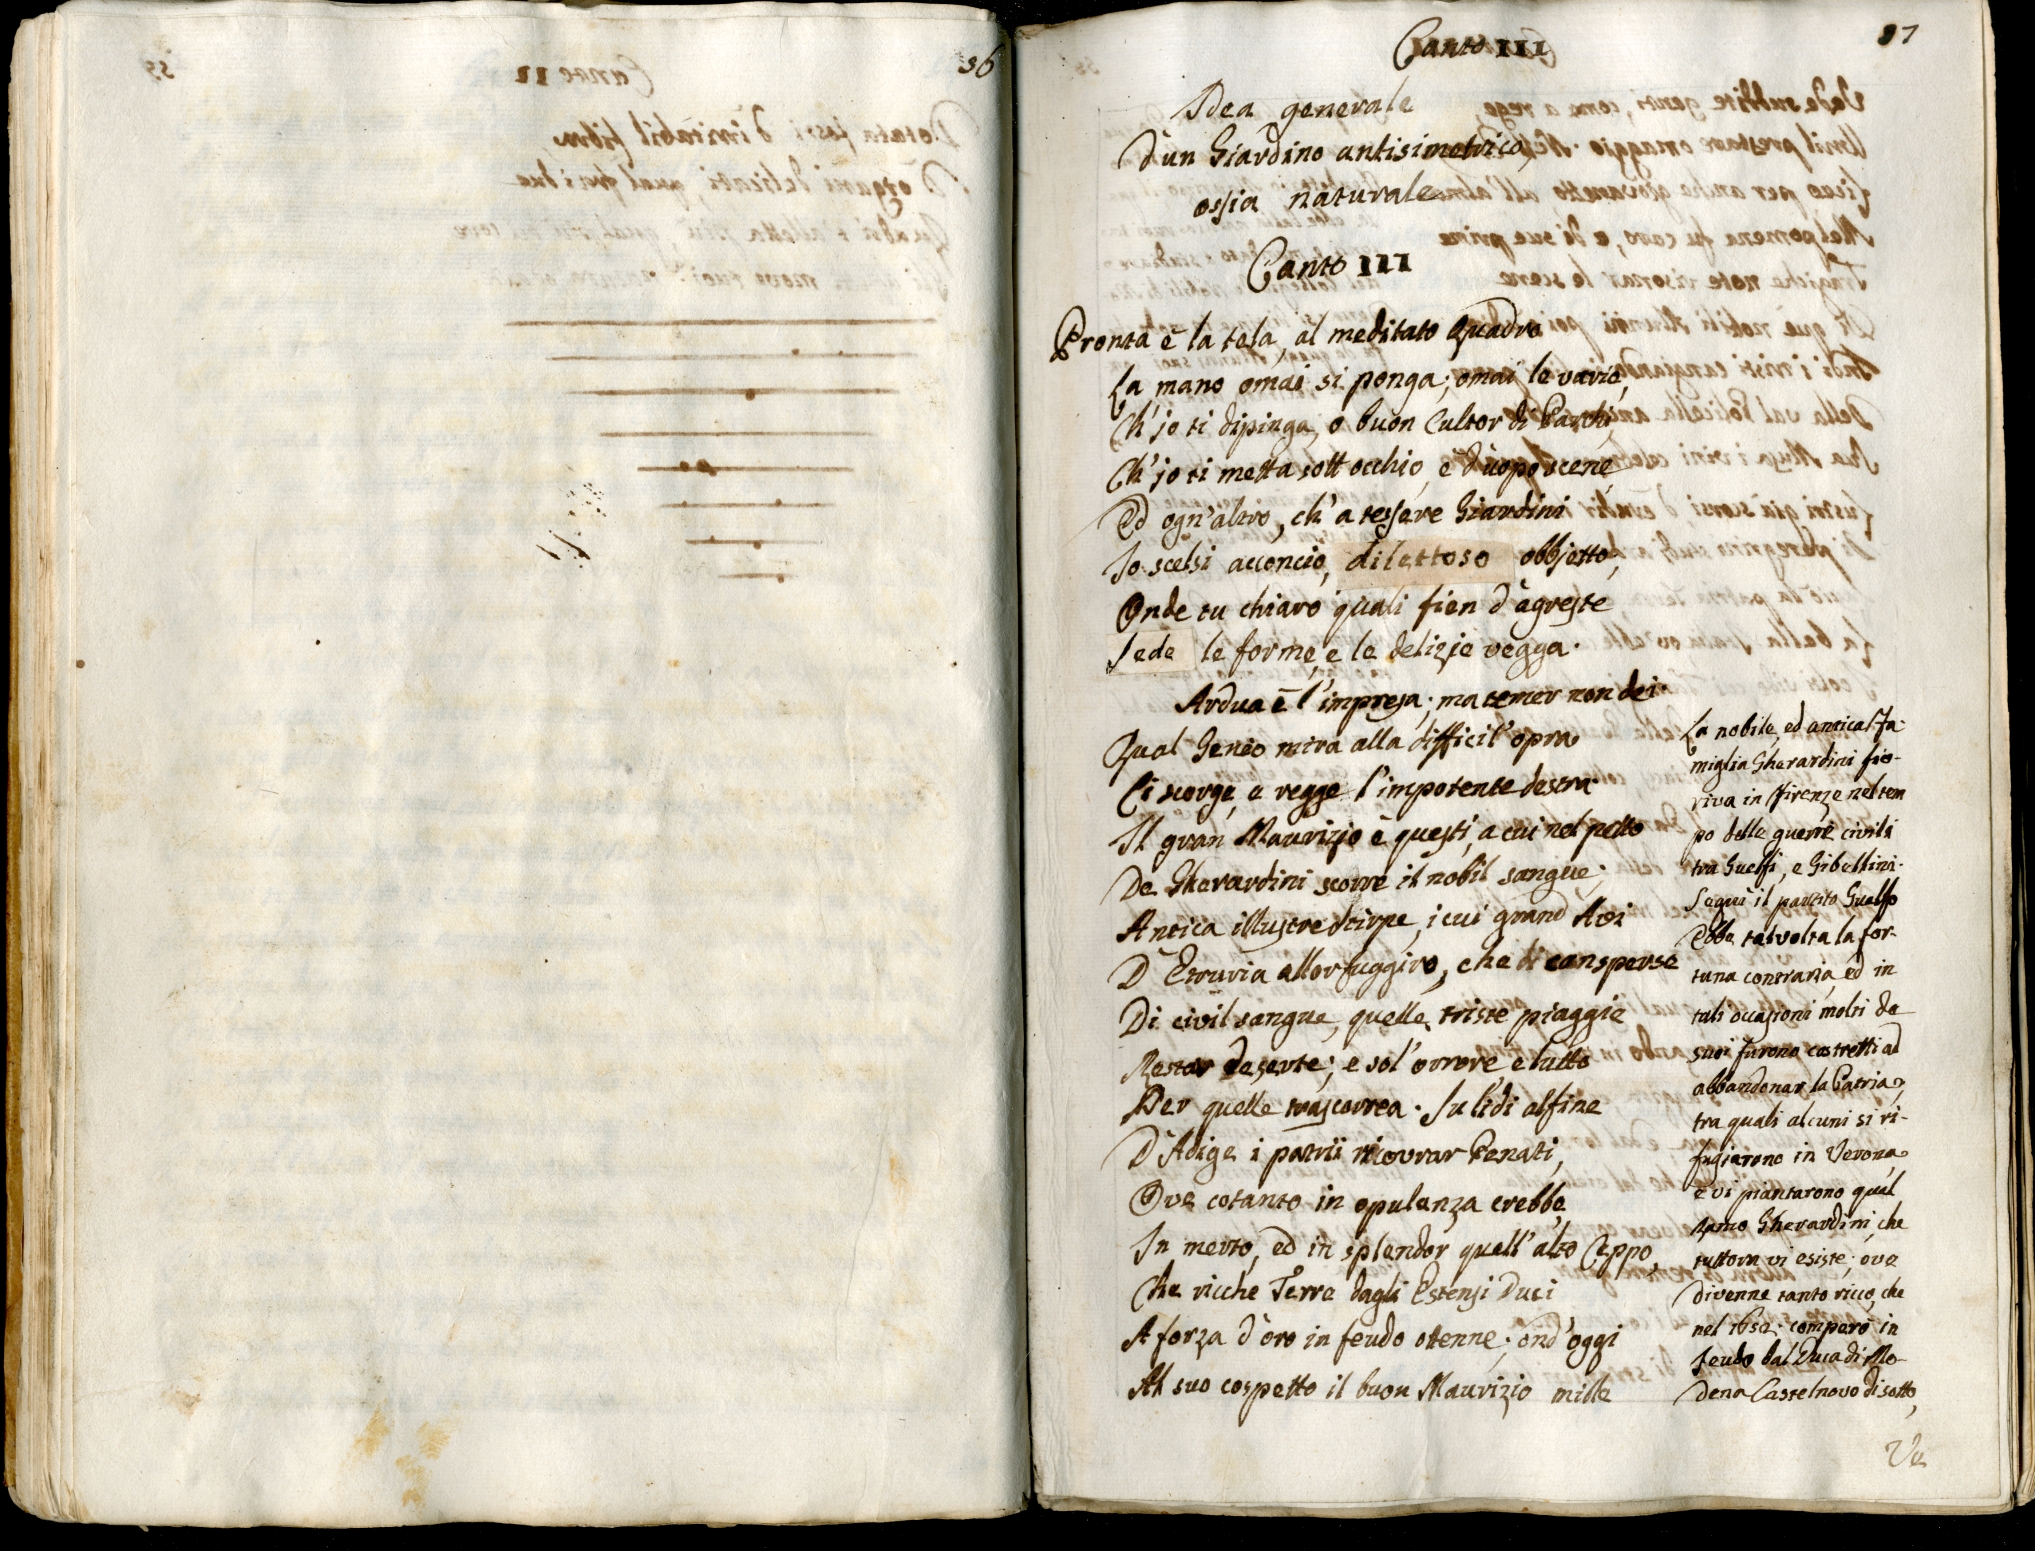 36
Canto III
37
Idea generale
D'un Giardino antisimetrico,
ossia naturale
Canto III
Pronta è la tela, al meditato Quadro
La mano omai si ponga; omai le varie,
Ch'jo ti dipinga, o buon Cultor di Parchi,
Ch'jo ti metta sott occhio, è d'uopo scene,
Ed ogn'altro, ch'a tessere Giardini
Jo scelsi acconcio, dilettoso obbjetto,
Onde tu chiaro quali fien d'agreste
Sede le forme, e le delizie vegga.
Ardua è l'impresa; ma temer non dei.
Qual Genio mira alla difficil'opra
Ci scorge, e regge l'impotente destra.
Il gran Maurizio è questi, a cui nel petto
De Gherardini scorre il nobil sangue;
Antica illustre stirpe, i cui grand' Avi
D'Etruria allor fuggiro, che di cansperse
Di civil sangue, quelle triste piaggie
Restar deserte; e sol'orrore, e lutto
Per quelle trascorrea. Su lidi alfine
D'Adige i patrii ricovrar Penati,
Ove cotanto in opulenza crebbe,
In merto, ed in splendor quell'alto Ceppo,
Che ricche Terre dagli Estensi Duci
A forza d'oro in feudo ottenne; ond'oggi
Al suo cospetto il buon Maurizio mille
La nobile, ed antica Fa-
miglia Gherardini fio-
riva in Firenze nel tem
po delle guerre civili
tra Guelfi, e Gibellini.
Seguì il partito Guelfo
Ebbe talvolta la for-
tuna contraria, ed in
tali occasioni molti de
suoi furono costretti ad
abbandonar la Patria,
tra quali alcuni si ri-
fugiarono in Verona,
e vi piantarono qual
ramo Gherardini, che
tuttora vi esiste; ove
divenne tanto ricco, che
nel 1652. comperò in
feudo dal Duca di Mo-
dena Castelnovo di sotto,
Ve